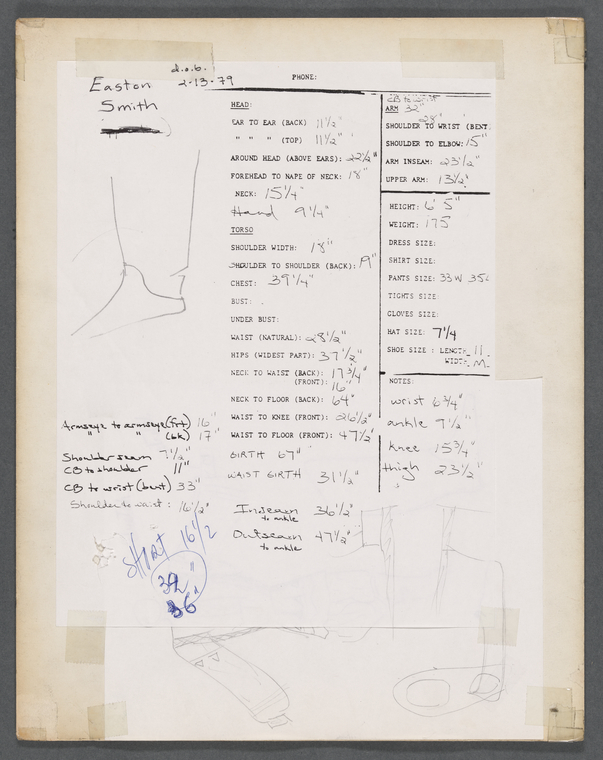 d.o.b.
Easton 2-13-79
Smith
PHONE:
HEAD:
EAR TO EAR (BACK) 11 1/2"
" " " (TOP) 11 1/2"
AROUND HEAD (ABOVE EARS): 22 1/2"
FOREHEAD TO NAPE OF NECK: 18"
NECK: 15 1/4"
Hand 9 1/4"
TORSO
SHOULDER WIDTH: 18"
SHOULDER TO SHOULDER (BACK): 19"
CHEST: 39 1/4"
BUST:
UNDER BUST:
WAIST (NATURAL): 28 1/2"
HIPS (WIDEST PART): 37 1/2"
NECK TO WAIST (BACK): 17 3/4"
(FRONT): 16"
NECK TO FLOOR (BACK): 64"
WAIST TO KNEE (FRONT): 26 1/2"
WAIST TO FLOOR (FRONT): 47 1/2"
GIRTH 67"
WAIST GIRTH 31 1/2"
Inseam 36 1/2"
to ankle
Outseam 47 1/2"
to ankle
CB to wrist
ARM 32"
28"
SHOULDER TO WRIST (BENT
SHOULDER TO ELBOW: 15"
ARM INSEAM: 23 1/2"
UPPER ARM: 13 1/2"
HEIGHT: 6' 5"
WEIGHT: 175
DRESS SIZE:
SHIRT SIZE:
PANTS SIZE: 33W 35L
TIGHTS SIZE:
GLOVES SIZE:
HAT SIZE: 7 1/4
SHOE SIZE: LENGTH 11
WIDTH M
NOTES:
wrist 6 3/4"
ankle 9 1/2"
knee 15 3/4"
thigh 23 1/2"
Armseye to armseye (frt) 16"
" " (bk) 17"
Shoulder seam 7 1/2"
CB to shoulder 11"
CB to wrist (bent) 33"
Shoulder to waist: 16 1/2"
SHIRT 16 1/2
32"
36"